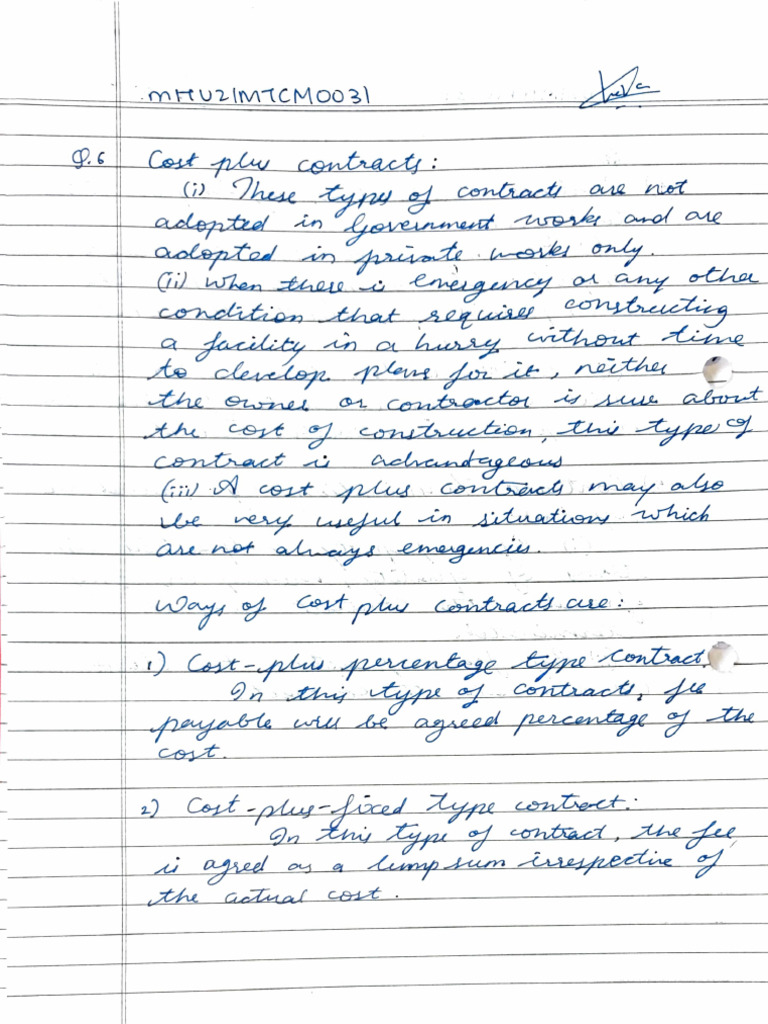 MHU21MTCM0031
Q.6 Cost plus contracts:
(i) These types of contracts are not
adopted in Government works and are
adopted in private works only.
(ii) When there is emergency or any other
condition that requires constructing
a facility in a hurry without time
to develop plans for it, neither
the owner or contractor is sure about
the cost of construction, this type of
contract is advantageous
(iii) A cost plus contracts may also
be very useful in situations which
are not always emergencies.
Ways of Cost plus contracts are:
1) Cost-plus percentage type contract.
In this type of contracts, fee
payable will be agreed percentage of the
cost.
2) Cost-plus-fixed type contract:
In this type of contract, the fee
is agred as a lump sum irrespective of
the actual cost.